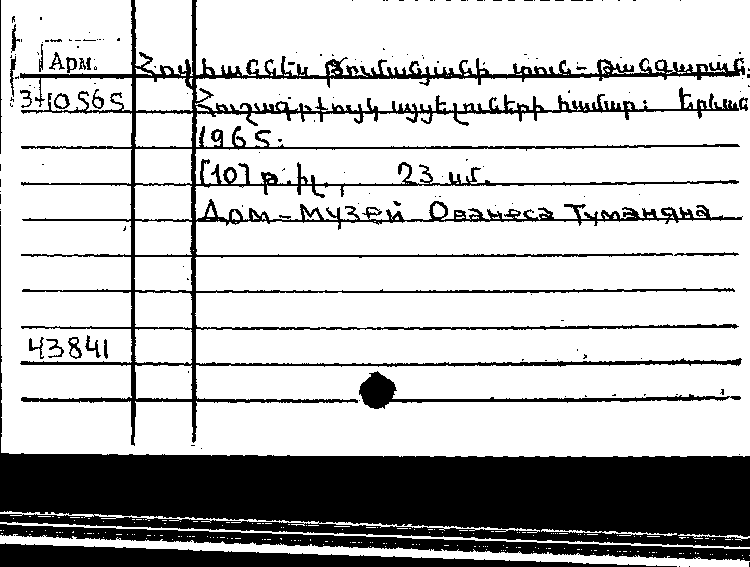 Арм.
Հովհաննես Թումանյանի տուն-թանգարան.
3-10565
Հուշագրքույկ այցելուների համար: Երևան
1965.
[10] թ.իլ., 23 սմ.
Дом-музей Ованеса Туманяна
43841